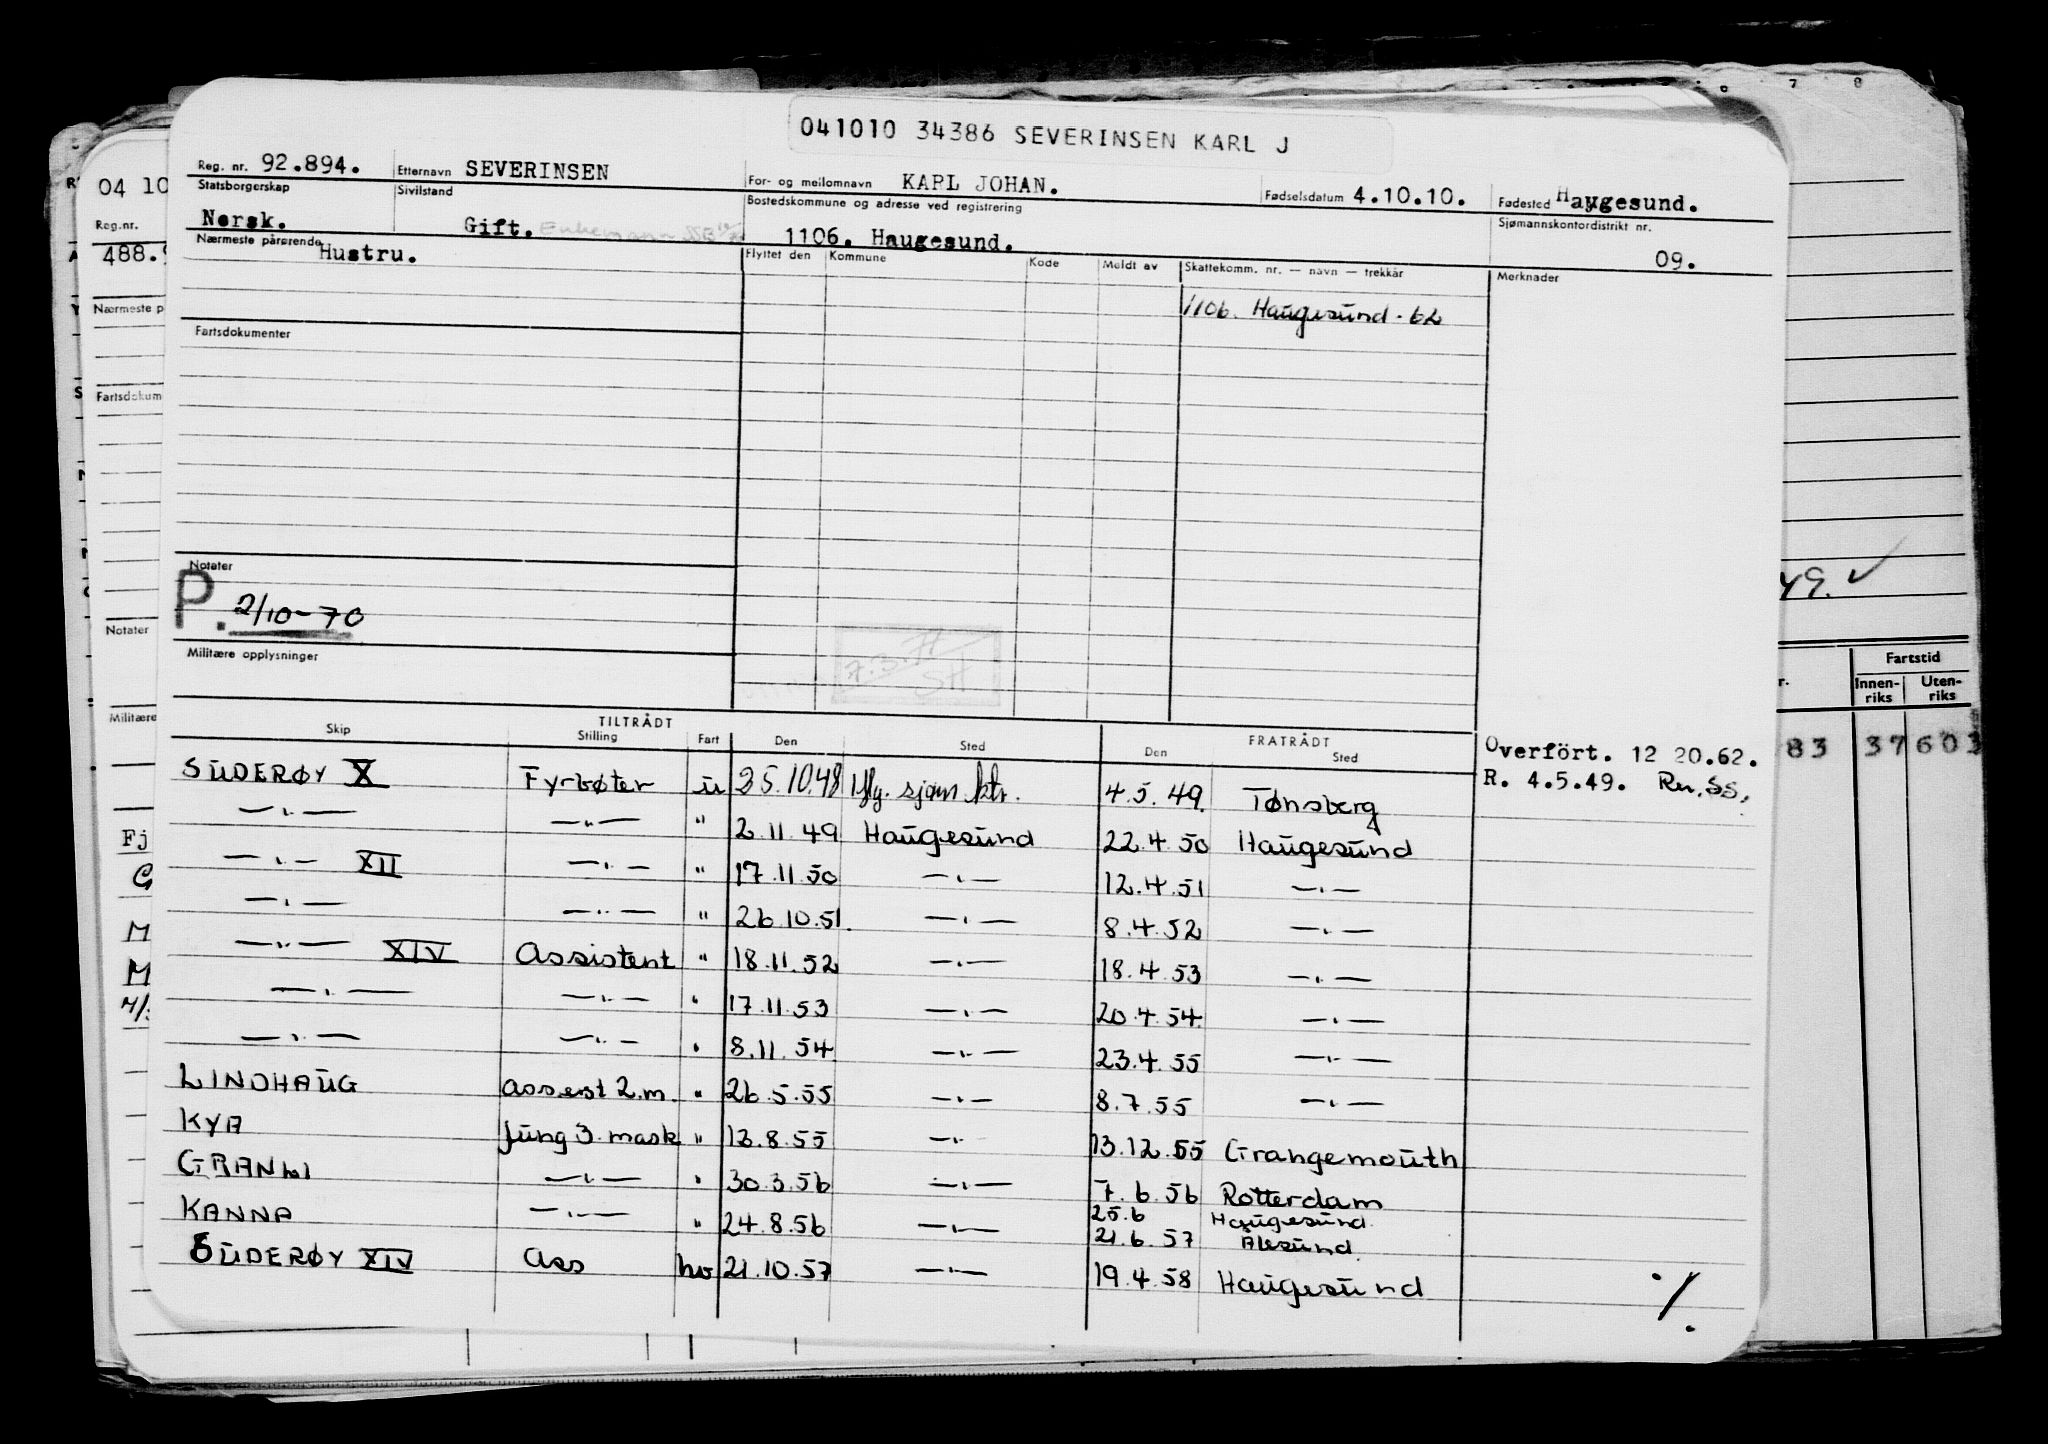 041010 34386 SEVERINSEN KARL J
Reg. nr. 92.894. Etternavn SEVERINSEN For- og mellomnavn KARL JOHAN. Fødselsdatum 4.10.10. Fødested Haygesund.
Statsborgerskap Norsk. Sivilstand Gift. Enkemann SSB Bostedskommune og adresse ved registrering 1106. Haugesund. Sjømannskontordistrikt nr. 09.
Nærmeste pårørende Hustru. Flyttet den Kommune Kode Meldt av Skattekomm. nr. — navn — trekkår Merknader
1106. Haugesund - 62
Fartsdokumenter
Notater
P. 2/10-70
7.3.71
SH
Militære opplysninger
TILTRÅDT FRATRÅDT
Skip Stilling Fart Den Sted Den Sted
Overfört. 12 20.62.
R. 4.5.49. Ru. SS.
SÜDERØY X Fyrbøter u 25.10.48 Hg. sjøm. ktr. 4.5.49. Tønsberg
—"— —"— " 2.11.49 Haugesund 22.4.50 Haugesund
—"— XII —"— " 17.11.50 —"— 12.4.51 —"—
—"— —"— " 26.10.51. —"— 8.4.52 —"—
—"— XIV Assistent " 18.11.52 —"— 18.4.53 —"—
—"— —"— " 17.11.53 —"— 20.4.54. —"—
—"— —"— " 8.11.54 —"— 23.4.55 —"—
LINDHAUG assist 2.m. " 26.5.55 —"— 8.7.55 —"—
KYA fung 3. mask " 12.8.55 —"— 13.12.55 Grangemouth
GRANLI —"— " 30.3.56 —"— 7.6.56 Rotterdam
25.6 Haugesund.
KANNA —"— " 24.8.56 —"— 21.6.57 Ålesund.
SÜDERØY XIV Ass hv 21.10.57 —"— 19.4.58 Haugesund
./.
04 10
Reg.nr.
488.9
Nærmeste p
Fartsdokum
Notater
Militære
Fj
G
M
M
7 8
49. ✓
Fartstid
Innen-riks Uten-riks
83 37 603